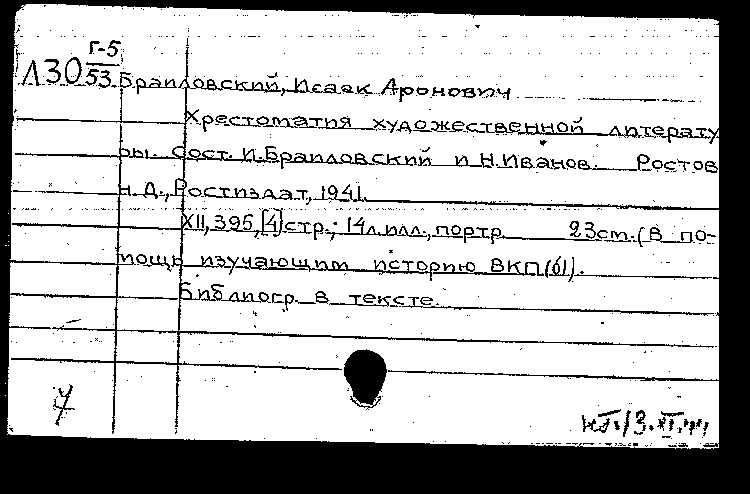 Г-5
Л30 53 Браиловский, Исаак Аронович
Хрестоматия художественной литерату
ры. Сост. И.Браиловский и Н.Иванов. Ростов
н. Д., Ростиздат, 1941.
XII, 395, [4] стр.; 14 л. илл., портр. 23 см. (В по-
мощь изучающим историю ВКП(б)).
Библиогр. в тексте.